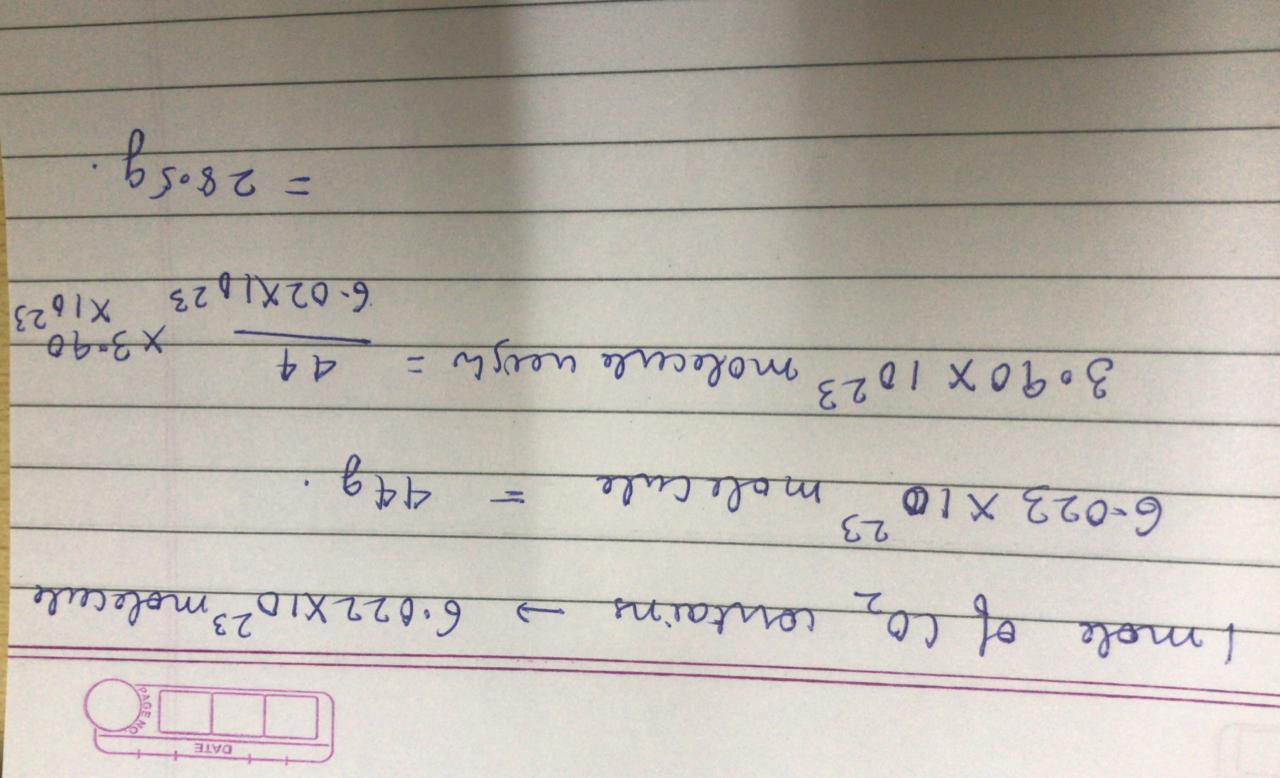 DATE
PAGE NO.
1 mole of CO2 contains → 6.022X10^23 molecule
6.023 X 10^23 molecule = 44g.
3.90X 10^23 molecule weigh = 44 / 6.02X10^23 X 3.90 X10^23
= 28.5g.